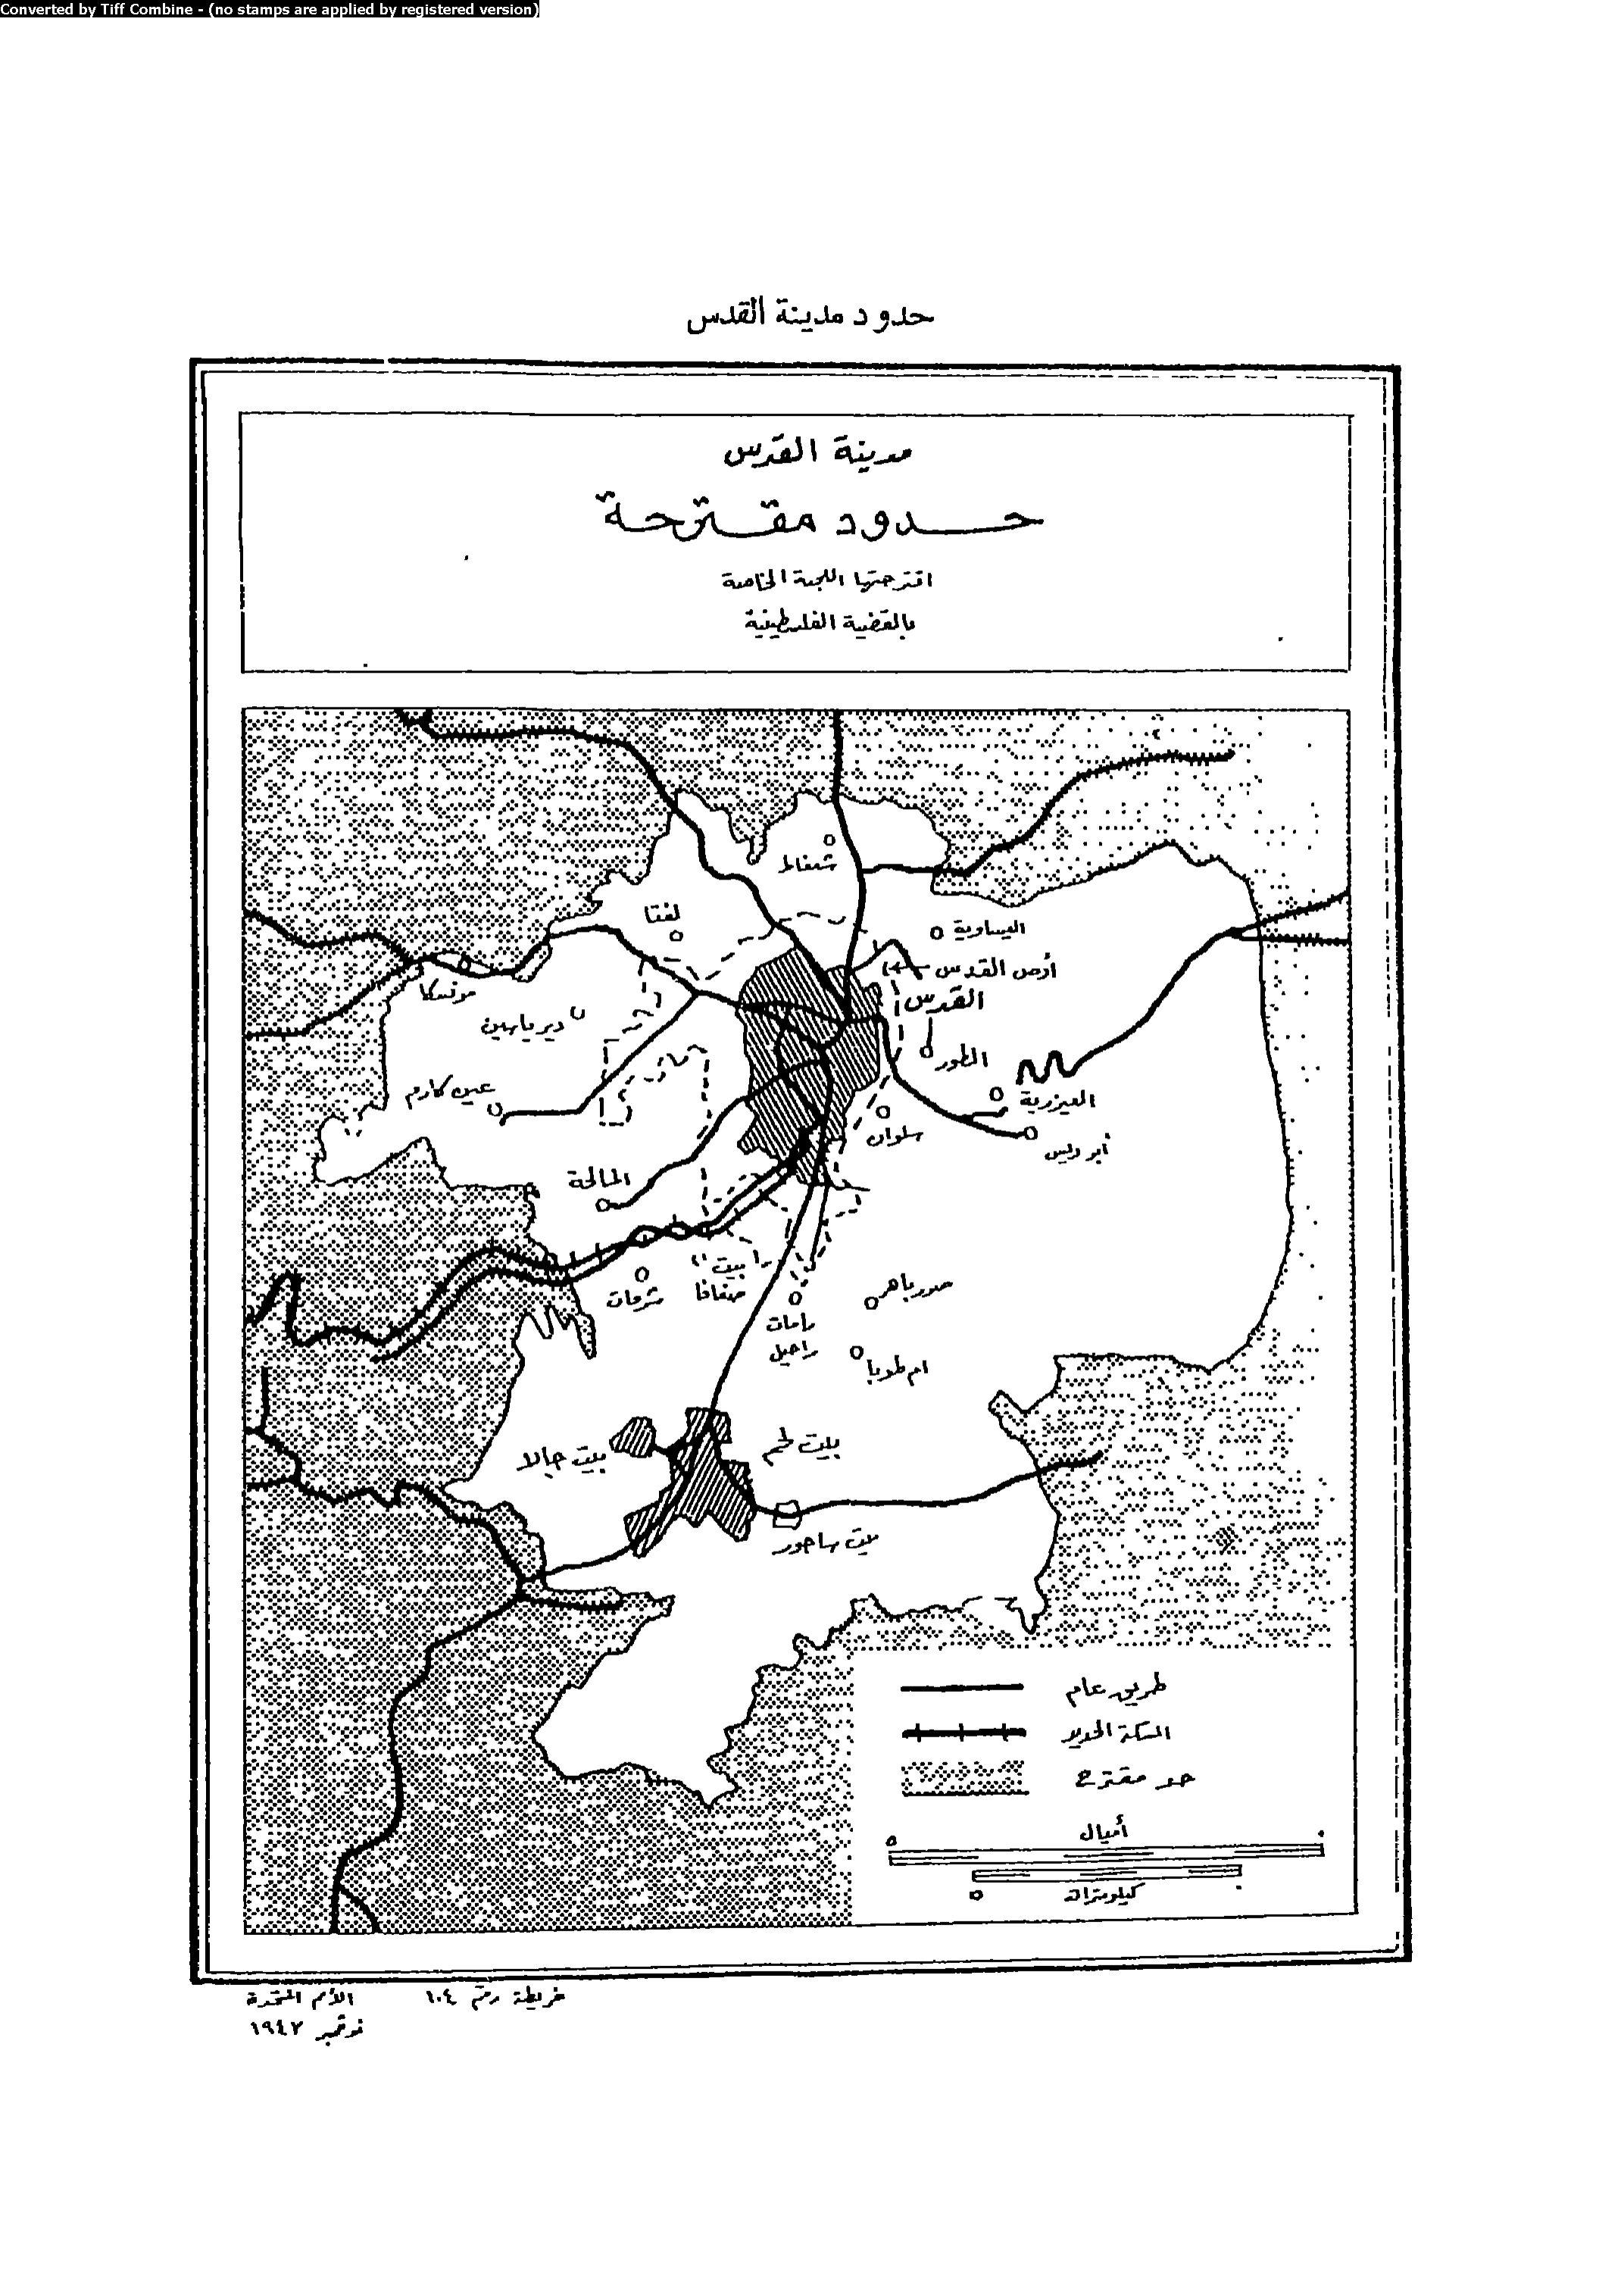 Converted by Tiff Combine - (no stamps are applied by registered version)
حدود مدينة القدس
مدينة القدس
حدود مقترحة
اقترحتها اللجنة الخاصة
بالقضية الفلسطينية
شعفاط
لفتا
العيساوية
أرض القدس
القدس
موتسكا
دير ياسين
الطور
عين كارم
العيزرية
سلوان
أبو ديس
المالحة
بيت
صفافا
شرفات
صور باهر
رامات
راحيل
ام طوبا
بيت لحم
بيت جالا
بيت ساحور
طريق عام
السكة الحديد
حد مقترح
أميال
كيلومترات
الأمم المتحدة
خريطة رقم ١٠٤
نوفمبر ١٩٤٧